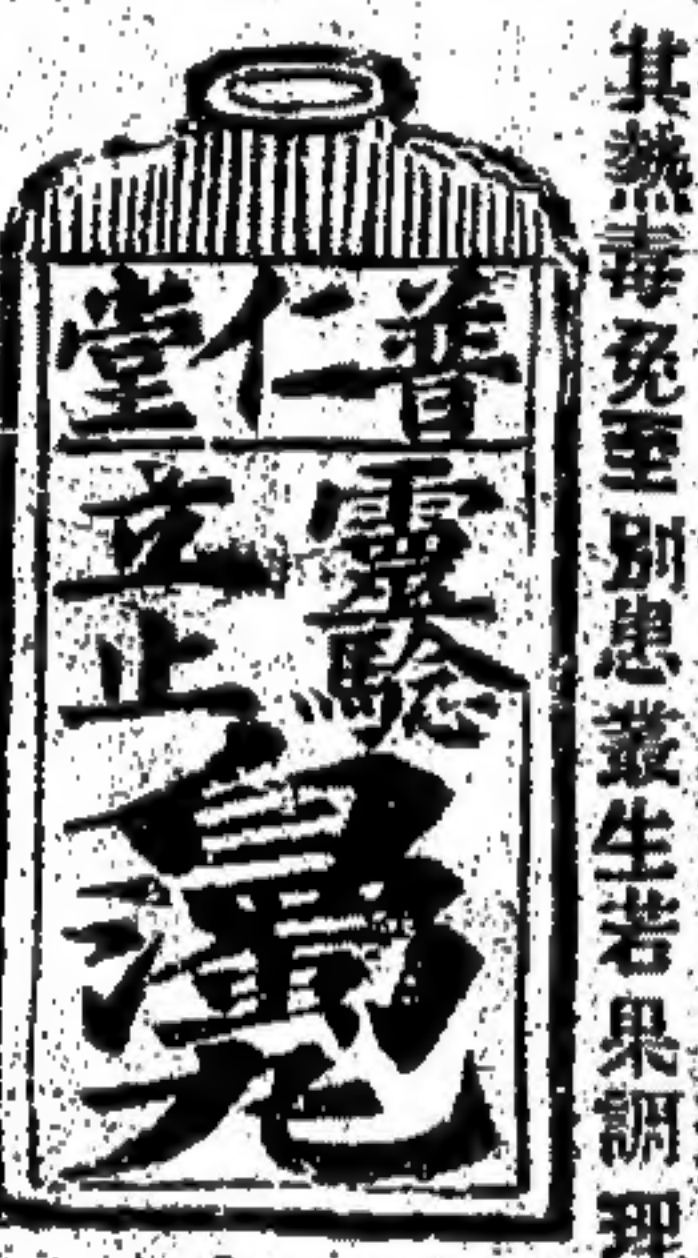 其熱毒免至別患叢生若果調理
普仁堂
靈驗
立止
白濁丸